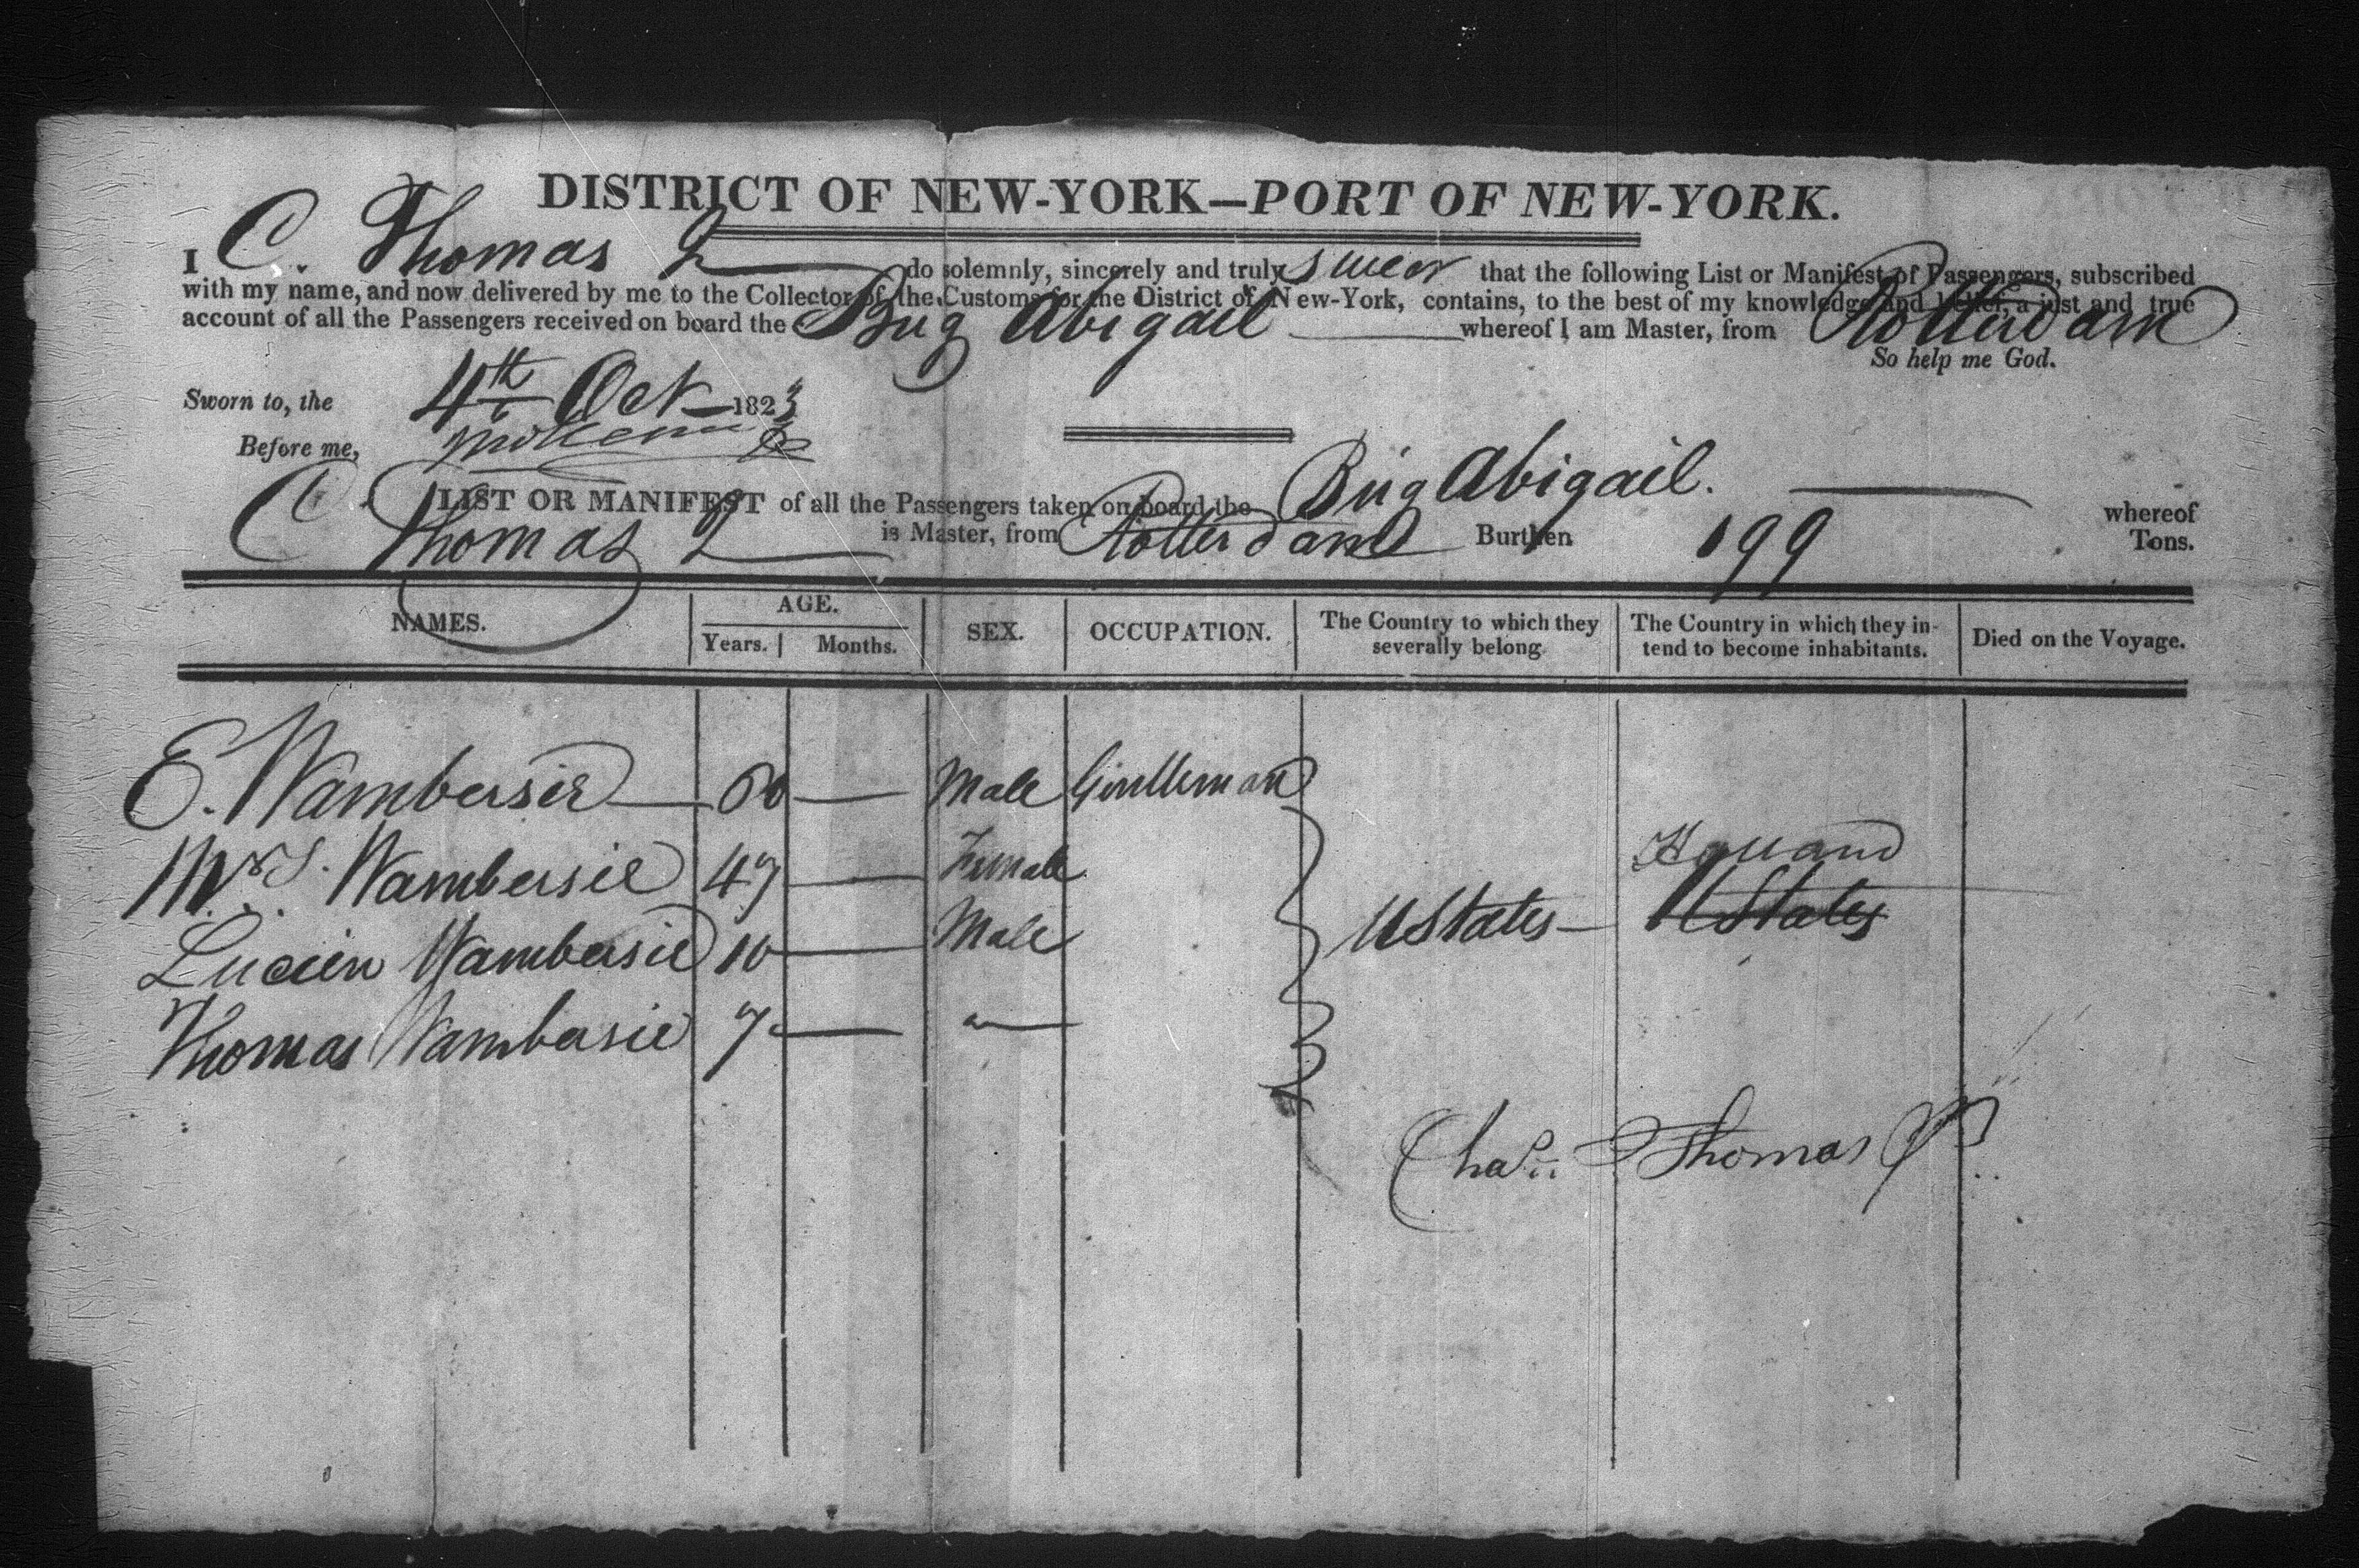 DISTRICT OF NEW-YORK—PORT OF NEW-YORK.
I C. Thomas 2 do solemnly, sincerely and truly swear that the following List or Manifest of Passengers, subscribed
with my name, and now delivered by me to the Collector of the Customs for the District of New-York, contains, to the best of my knowledge and belief, a just and true
account of all the Passengers received on board the Brig Abigail whereof I am Master, from Rotterdam
So help me God.
Sworn to, the 4th Oct 1823
Before me,
LIST OR MANIFEST of all the Passengers taken on board the Brig Abigail. whereof
C. Thomas 2 is Master, from Rotterdam Burthen 199 Tons.
NAMES. AGE. Years. Months. SEX. OCCUPATION. The Country to which they severally belong The Country in which they intend to become inhabitants. Died on the Voyage.
E. Wambersie 60 — Male Gentleman
Mrs. Wambersie 47 — Female Holland
Lucien Wambersie 10 — Male U States — U States
Thomas Wambersie 7 — "
Chas. Thomas